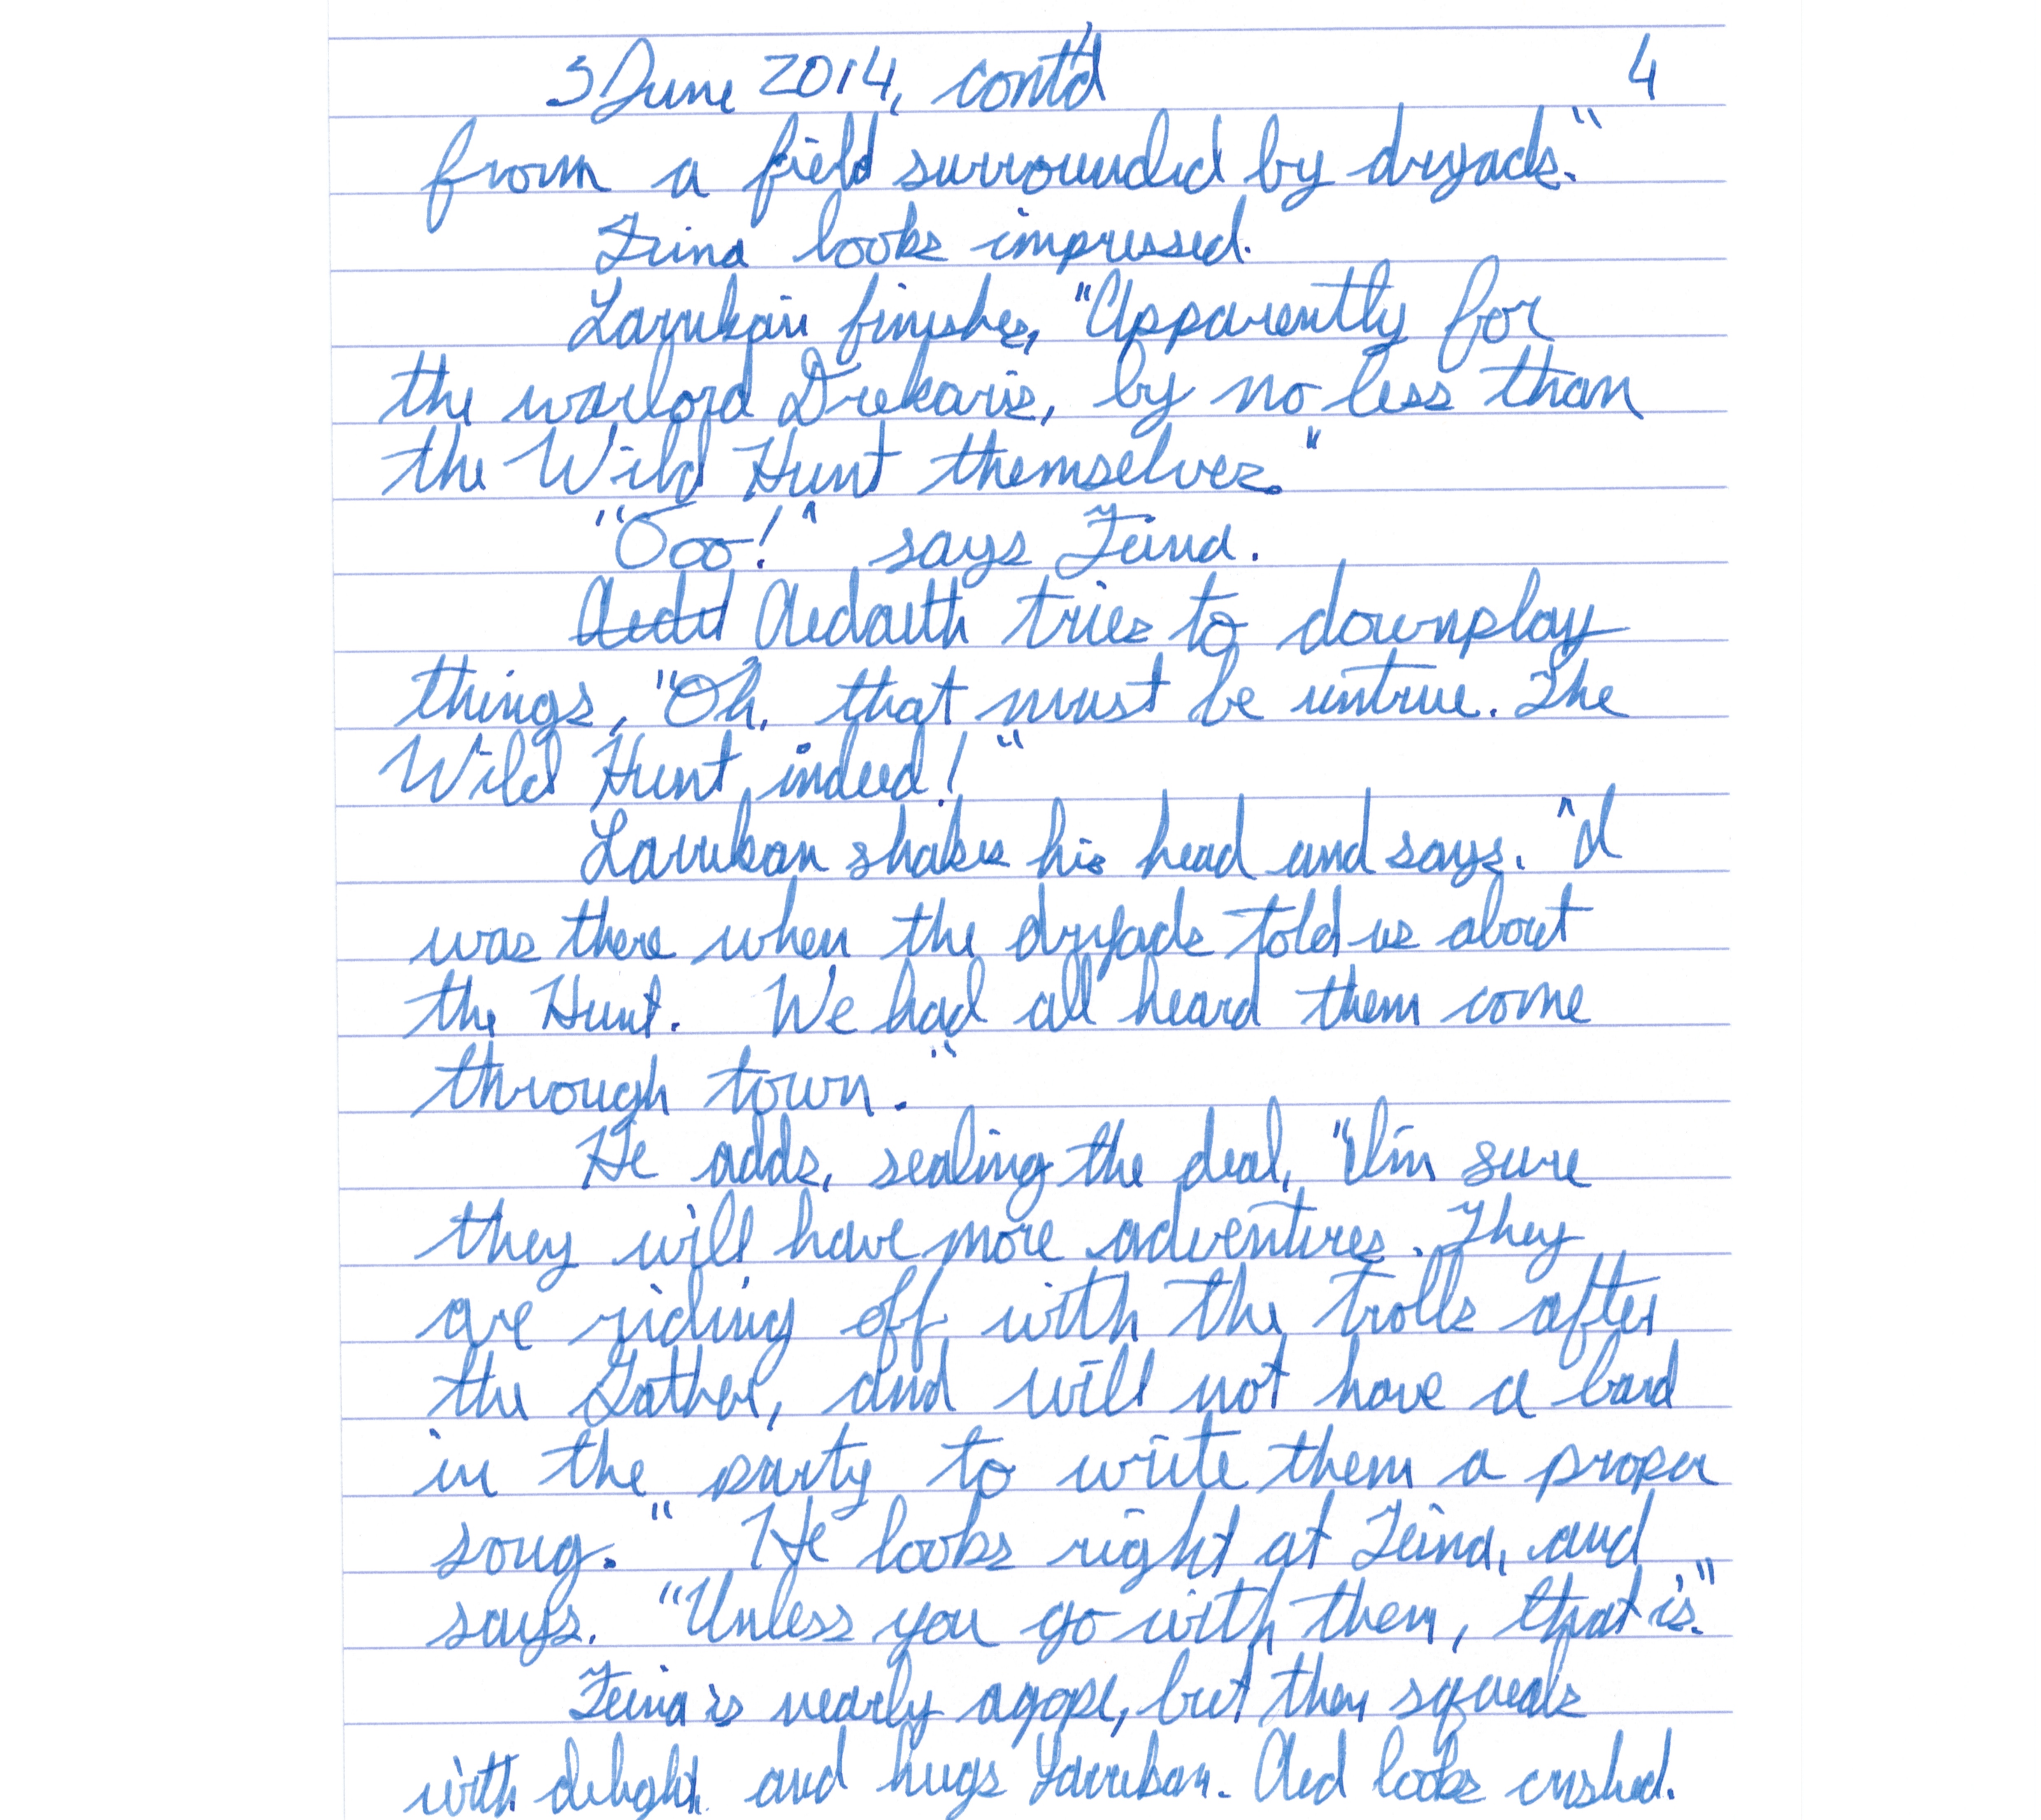 3 June 2014, cont'd 4
from a field surrounded by dryads."
Feina looks impressed.
Larukan finishes, "Apparently for
the warlord Drekaris, by no less than
the Wild Hunt themselves."
"Ooo!" says Feina.
Aedait Aedaith tries to downplay
things, "Oh, that must be untrue. The
Wild Hunt, indeed!"
Larukan shakes his head and says. "I
was there when the dryads told us about
the Hunt. We had all heard them come
through town."
He adds, sealing the deal, "I'm sure
they will have more adventures. They
are riding off with the trolls after
the Father, and will not have a bard
in the party to write them a proper
song." He looks right at Feina, and
says. "Unless you go with them, that is."
Feina is nearly agape, but then squeals
with delight and hugs Larukan. Aed looks crushed.